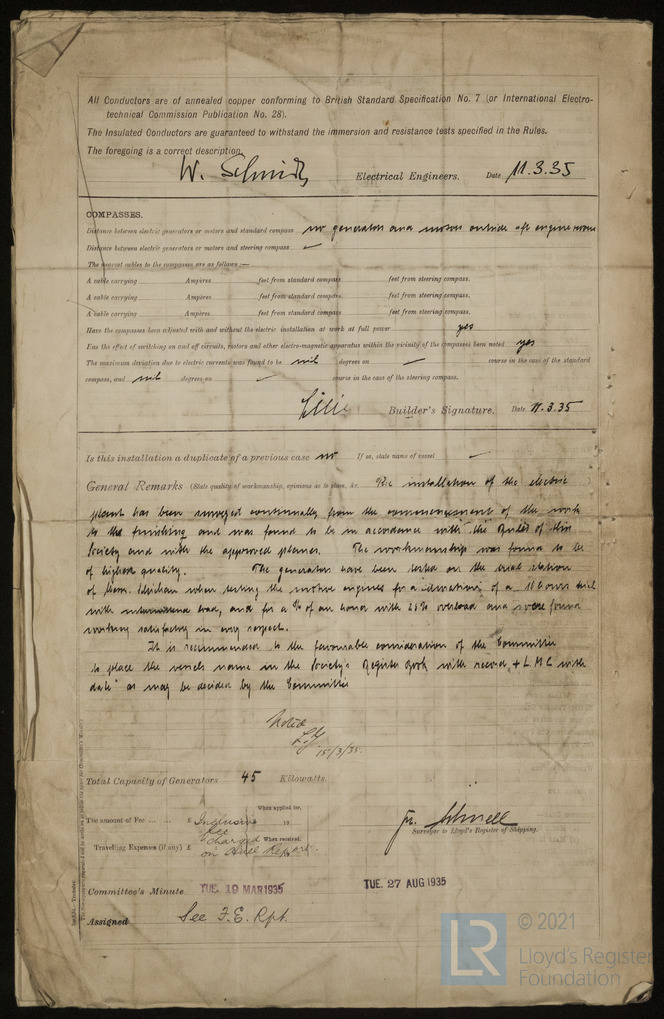 All Conductors are of annealed copper conforming to British Standard Specification No. 7 (or International Electro-
technical Commission Publication No. 28).
The Insulated Conductors are guaranteed to withstand the immersion and resistance tests specified in the Rules.
The foregoing is a correct description,
W. Schmidt Electrical Engineers. Date 11.3.35
COMPASSES.
Distance between electric generators or motors and standard compass no generators and motors outside aft engine room
Distance between electric generators or motors and steering compass —
The nearest cables to the compasses are as follows :—
A cable carrying Amperes feet from standard compass feet from steering compass.
A cable carrying Amperes feet from standard compass feet from steering compass.
A cable carrying Amperes feet from standard compass feet from steering compass.
Have the compasses been adjusted with and without the electric installation at work at full power yes
Has the effect of switching on and off circuits, motors and other electro-magnetic apparatus within the vicinity of the compasses been noted yes
The maximum deviation due to electric currents was found to be nil degrees on — course in the case of the standard
compass, and nil degrees on — course in the case of the steering compass.
Builder's Signature. Date 11.3.35
Is this installation a duplicate of a previous case no If so, state name of vessel —
General Remarks (State quality of workmanship, opinions as to plans, &c. The installation of the electric
plant has been surveyed continually from the commencement of the work
to the finishing and was found to be in accordance with the Rules of this
Society and with the approved planes. The workmanship was found to be
of highest quality. The generators have been tested on the trial station
of Mess. when testing the motive engines for a duration of a hours trial
with load, and for a ½ of an hour with 25% overload and were found
working satisfactory in every respect.
It is recommended to the favourable consideration of the Committee
to place the vessels name in the Society's Register Book with record, + LMC with
date as may be decided by the Committee
Noted
15/3/35.
Total Capacity of Generators 45 Kilowatts.
When applied for,
The amount of Fee ... ... £ Inclusive 19
fee
charged When received,
Travelling Expenses (if any) £ on Hull Report.
Surveyor to Lloyd's Register of Shipping.
Committee's Minute TUE. 19 MAR 1935 TUE. 27 AUG 1935
Assigned See F.E. Rpt.
LR © 2021
Lloyd's Register
Foundation